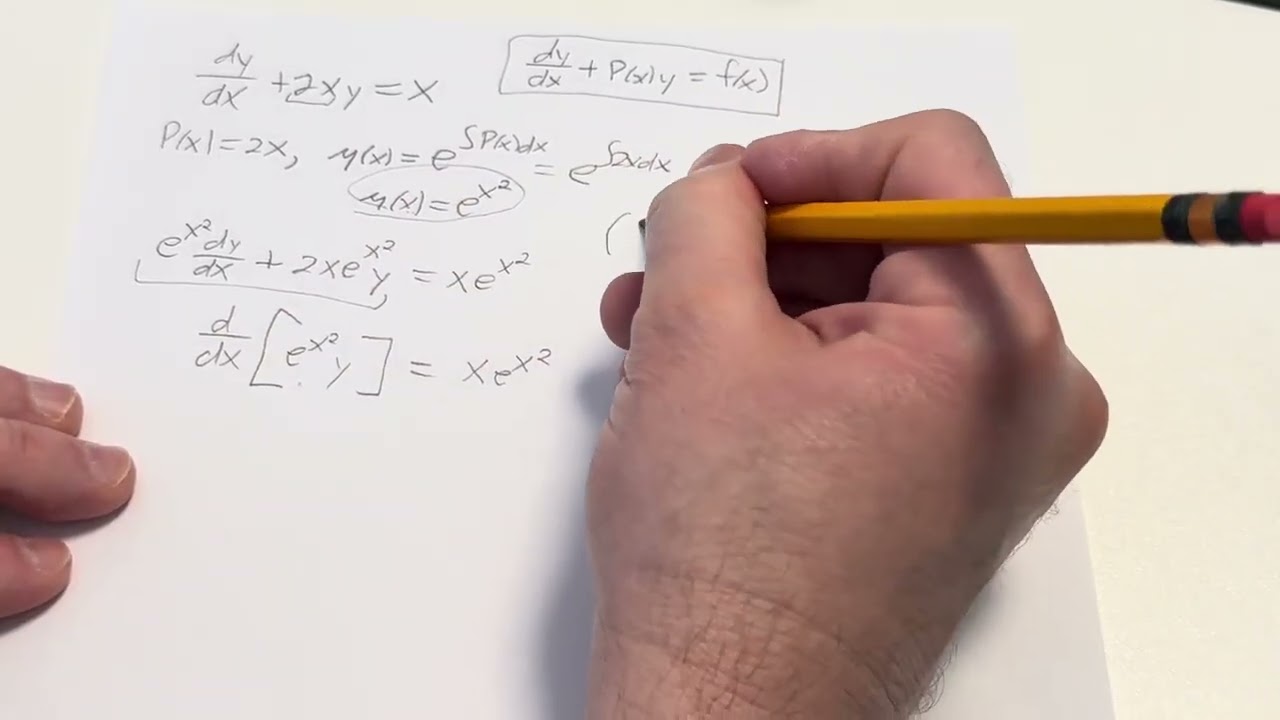 dy/dx + 2xy = x
dy/dx + P(x)y = f(x)
P(x) = 2x, μ(x) = e^∫P(x)dx = e^∫2xdx
μ(x) = e^x²
e^x² dy/dx + 2xe^x² y = xe^x²
(
d/dx [e^x² y] = xe^x²